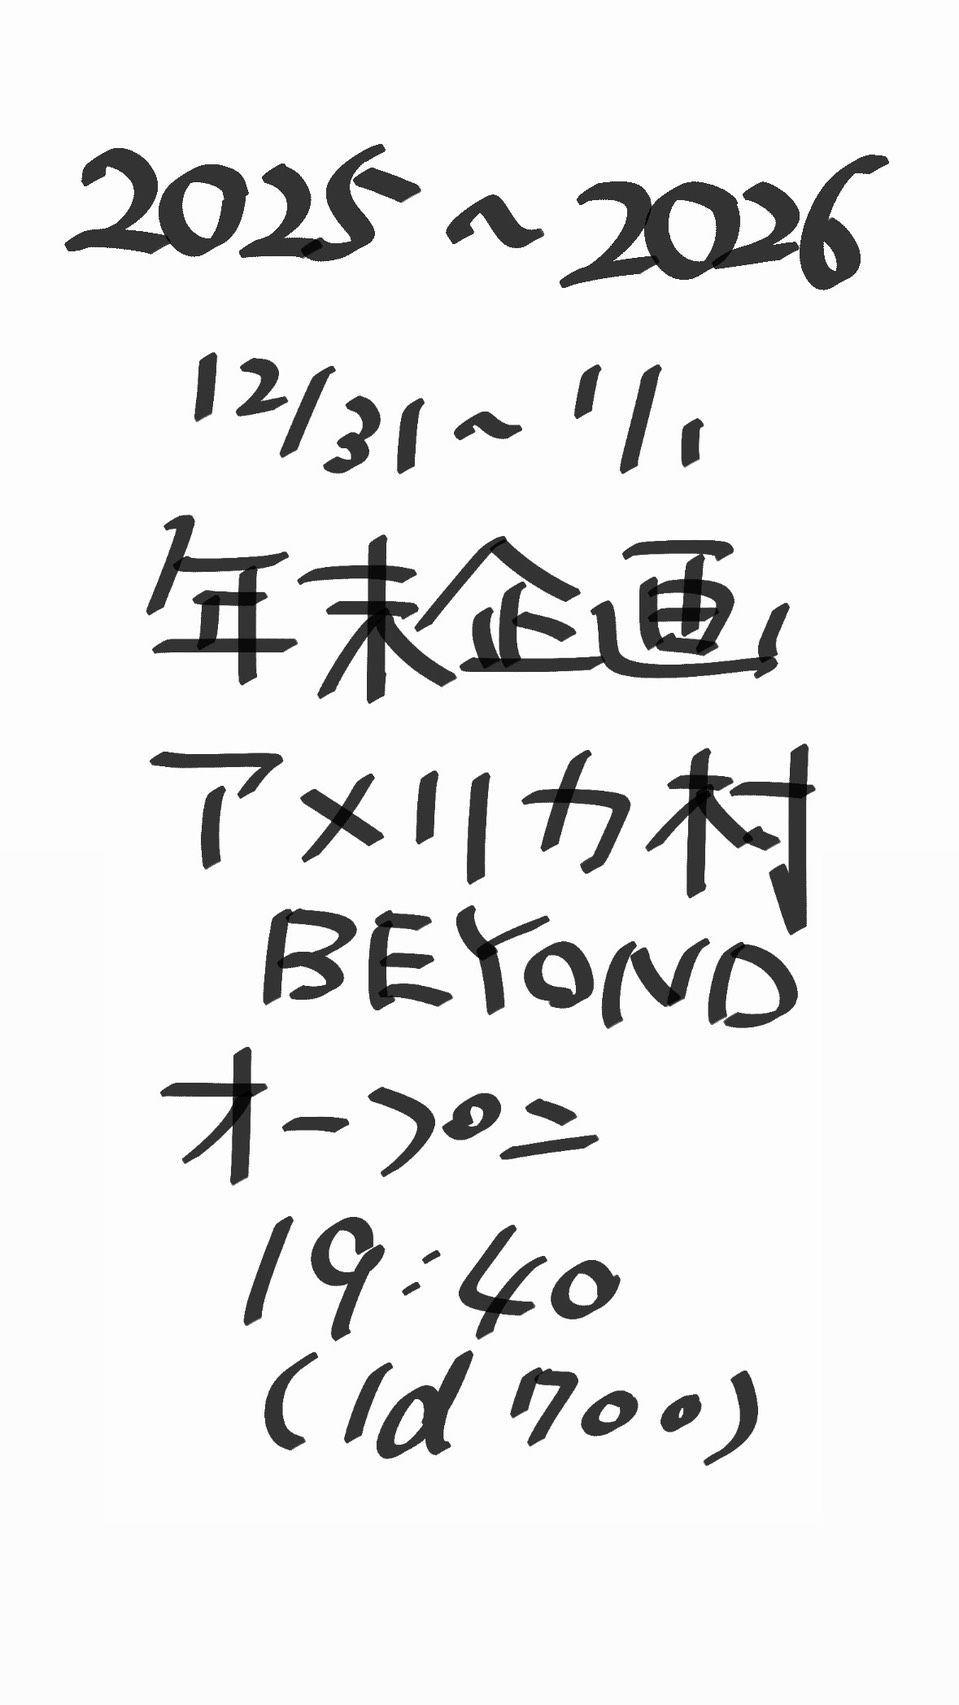 2025〜2026
12/31〜1/1
年末企画
アメリカ村
BEYOND
オープン
19:40
(1d 700)